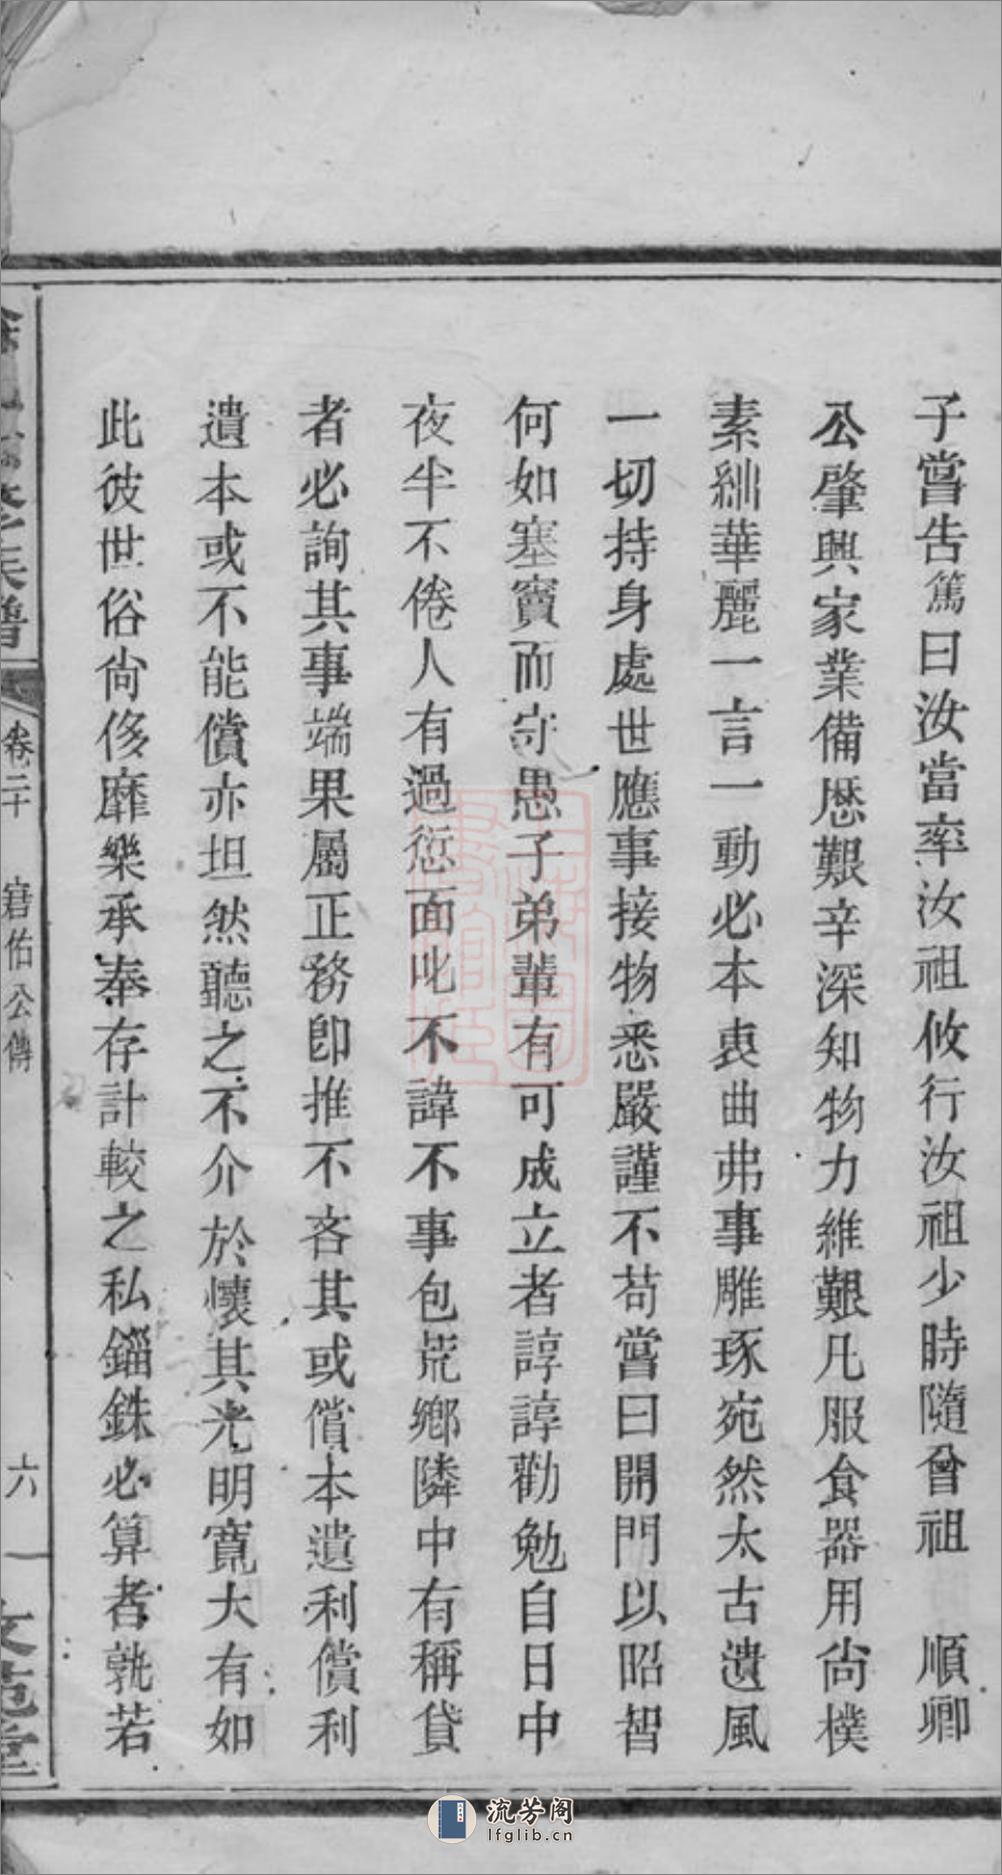 子嘗告篤曰汝當率汝祖攸行汝祖少時隨曾祖　順卿
公肇興家業備歷艱辛深知物力維艱凡服食器用尚樸
素絀華麗一言一動必本衷曲弗事雕琢宛然太古遺風
一切持身處世應事接物悉嚴謹不苟嘗曰開門以昭智
何如塞竇而守愚子弟輩有可成立者諄諄勸勉自日中
夜半不倦人有過愆面叱不諱不事包荒鄉隣中有稱貸
者必詢其事端果屬正務卽推不吝其或償本遺利償利
遺本或不能償亦坦然聽之不介於懷其光明寬大有如
此彼世俗尚侈靡樂承奉存計較之私錙銖必算者孰若
族譜
卷二十
佑公傳
六
流芳阁
lfglib.cn